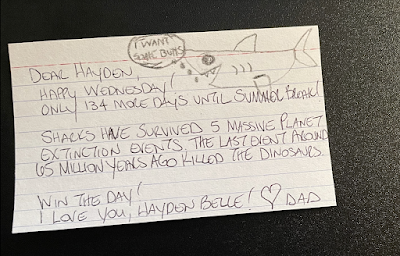 I WANT
SOME BUMS
DEAR HAYDEN,
HAPPY WEDNESDAY!
ONLY 134 MORE DAYS UNTIL SUMMER BREAK!
SHARKS HAVE SURVIVED 5 MASSIVE PLANET
EXTINCTION EVENTS. THE LAST EVENT AROUND
65 MILLION YEARS AGO KILLED THE DINOSAURS.
WIN THE DAY!
I LOVE YOU, HAYDEN BELLE! ♡ DAD